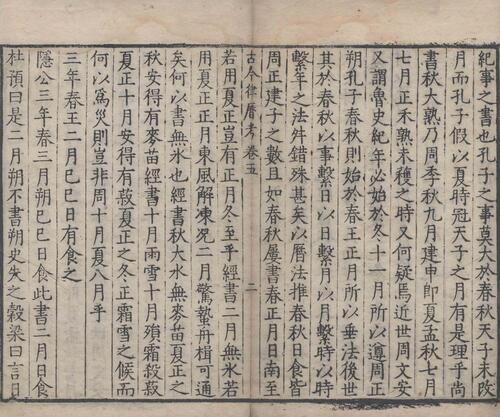 紀事之書也孔子之事莫大於春秋天子未改
月而孔子假以夏時冠天子之月有是理乎尚
書秋大熟乃周季秋九月建申即夏孟秋七月
七月正禾熟未穫之時又何疑焉近世周文安
又謂魯史紀年必始於冬十一月所以遵周正
朔孔子春秋則始於春王正月所以垂法後世
其於春秋以事繫日以日繫月以月繫時以時
繫年之法舛錯殊甚矣以曆法推春秋日食皆
周正建子之數且如春秋屢書春正月日南至
古今律曆考卷五
二
若用夏正豈有正月冬至乎經書二月無氷若
用夏正正月東風解凍况二月驚蟄舟楫可通
矣何以書無氷也經書秋大水無麥苗夏正之
秋安得有麥苗經書十月雨雪十月殞霜殺菽
夏正十月安得有菽夏正之冬正霜雪之候而
何以爲災則豈非周十月夏八月乎
三年春王二月己巳日有食之
隱公三年春三月朔己巳日食此書二月日食
杜預曰是二月朔不書朔史失之穀梁曰言日